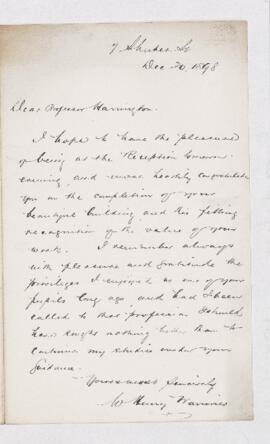 7 Shuter St
Dec 20, 1898
Dear Professor Harrington.
I hope to have the pleasure
of being at the Reception tomorrow
evening, and most heartily congratulate
you on the completion of your
beautiful building and this fitting
recognition of the value of your
work. I remember always
with pleasure and gratitude the
privileges I enjoyed as one of your
pupils long ago and had I been
called to that profession I should
have sought nothing better than to
continue my studies under your
guidance.
Yours most sincerely
W Henry Warriner